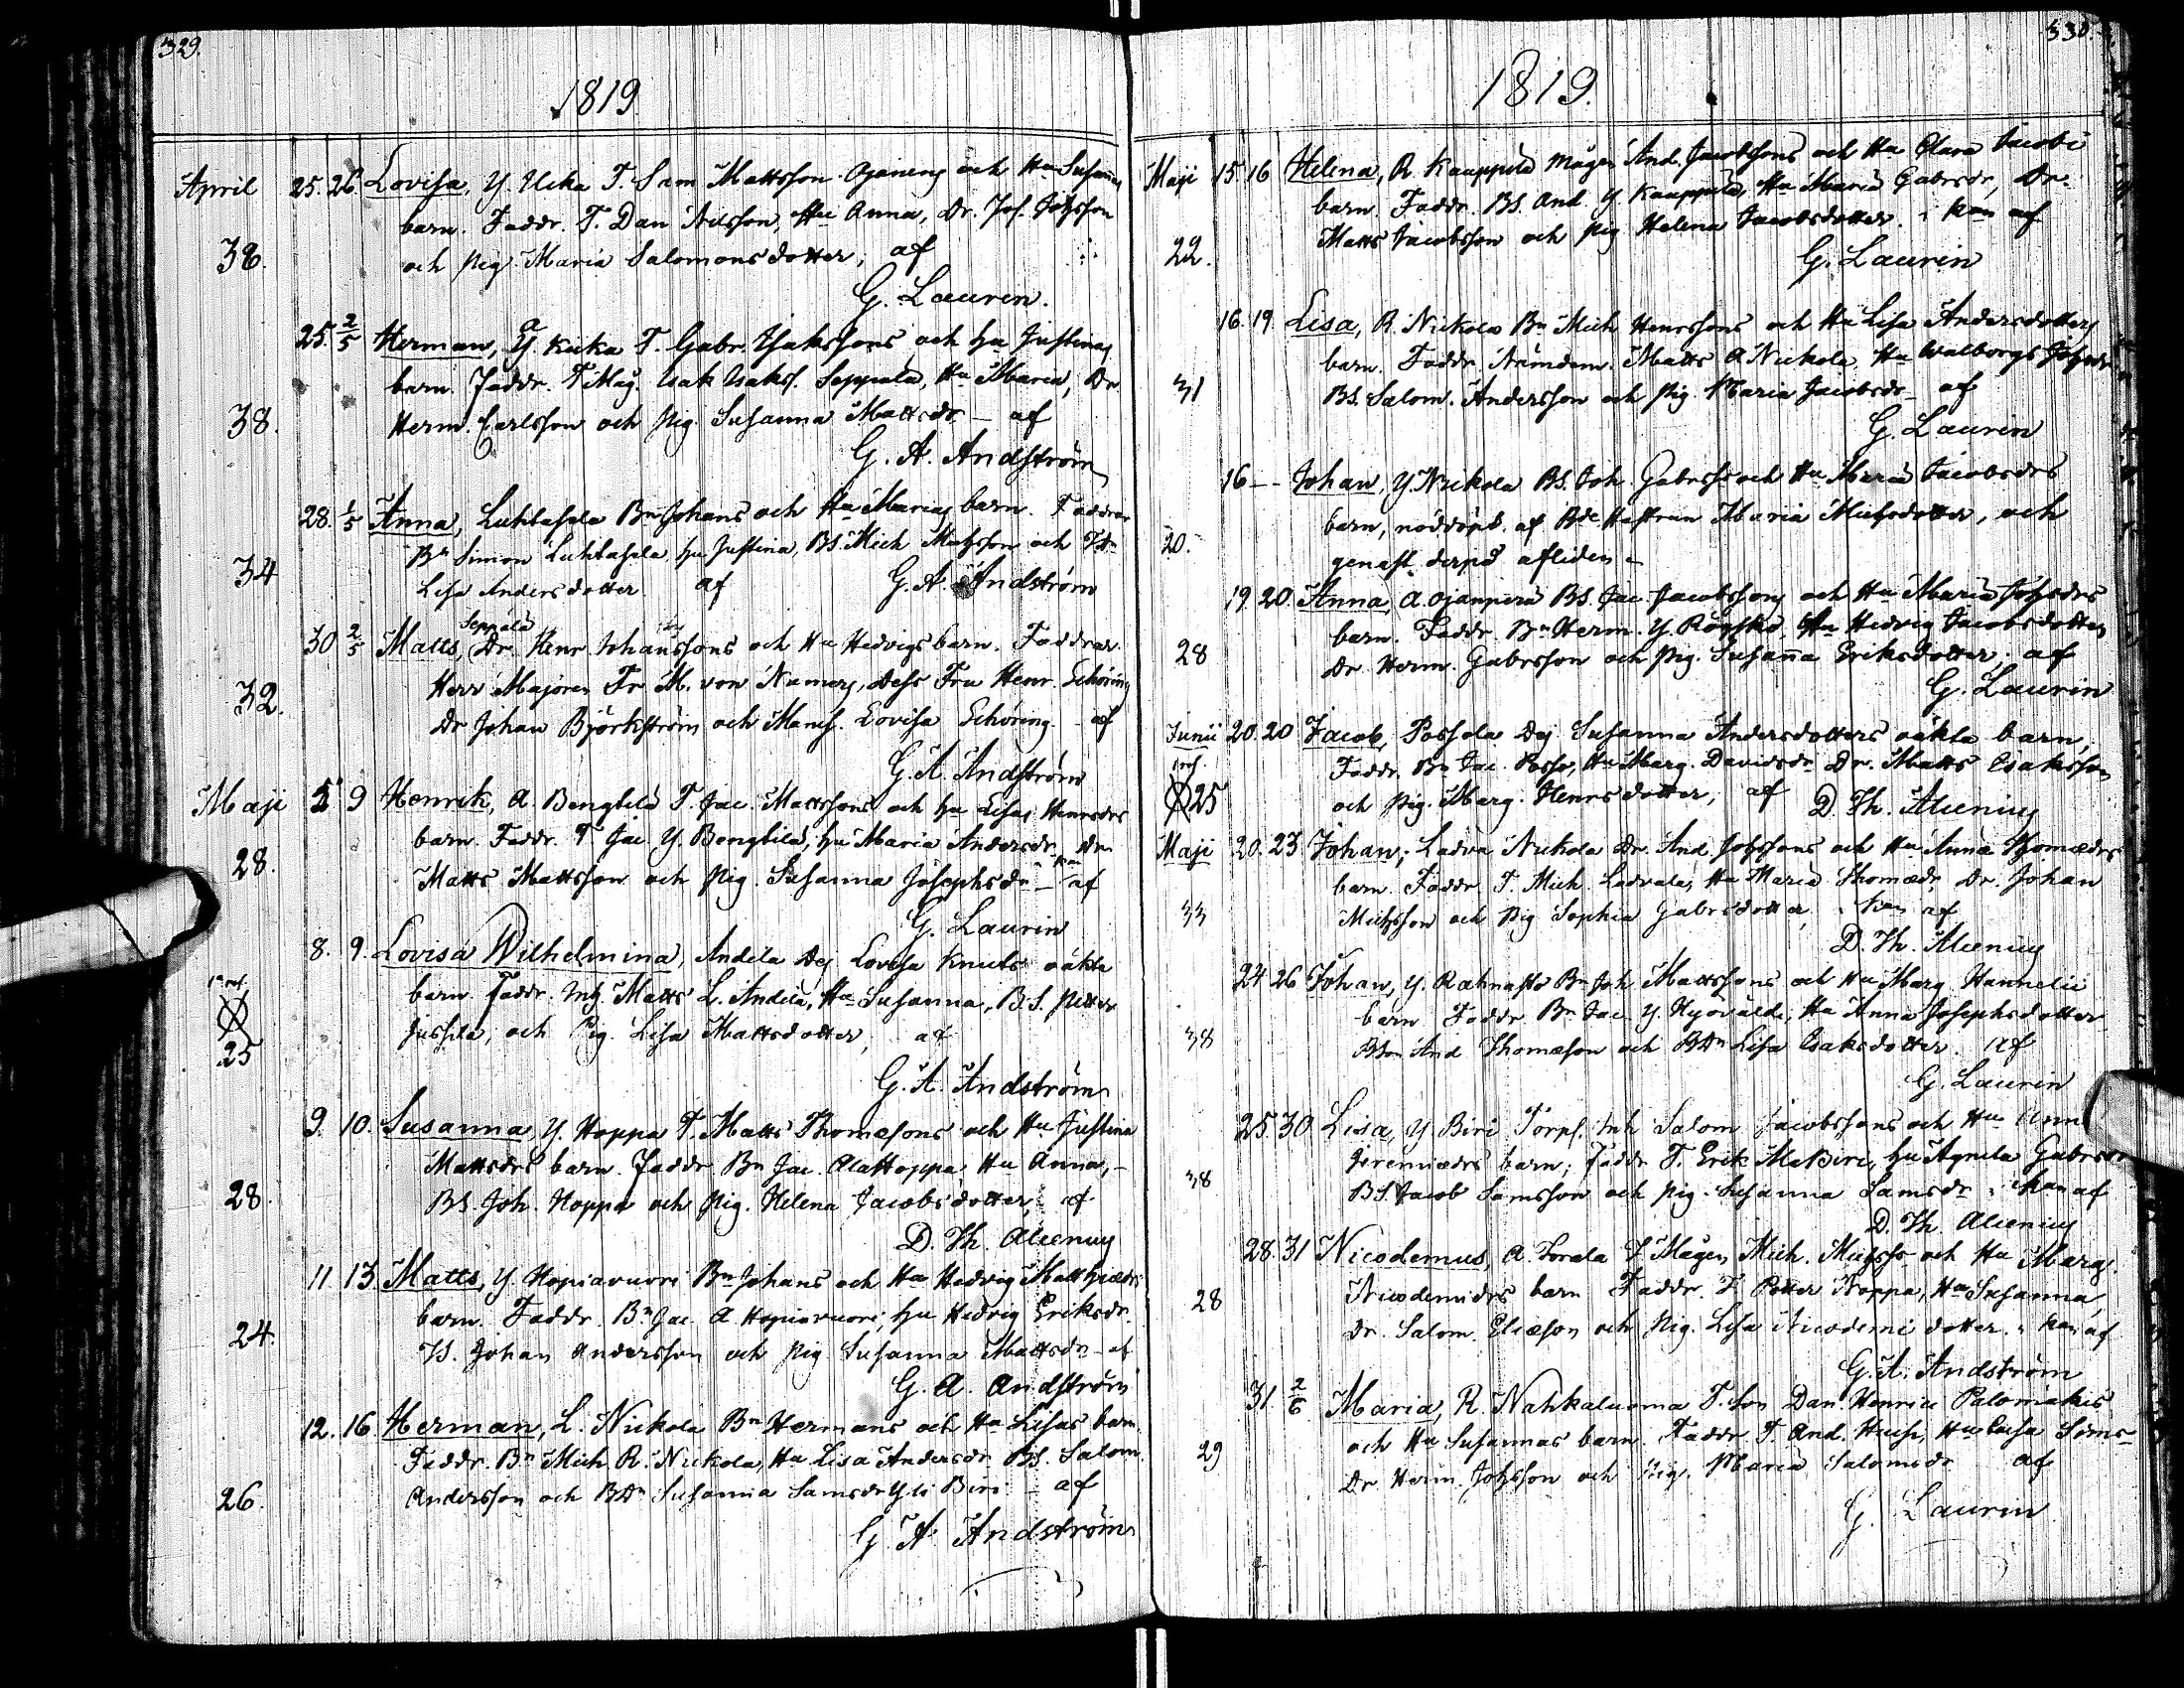 329.
1819.
April 25. 26. Lovisa, Y. Ucka T. Sam Mattsson Ojanens och Hu Susannas
barn. Faddr. T. Dan Nilsson, Hu Anna, Dr. Jos. Johsson
38. och pig. Maria Salomonsdotter, af
G. Laurin.
25. 2/5 Herman, Y. Kuka T. Gabr. Isakssons och hu Justinas
barn. Faddr. T Måg. Isak Isakss. Seppälä, Hu Maria, Dr
38. Herm. Carlsson och pig. Susanna Mattsdr – af
G. A. Andström
28. 1/5 Anna, Luhtasala Bn Johans och Hu Marias barn. Faddrar
Bn Simon Luhtasela, hu Justina, BS. Mich Mathsson och
34 Lisa Andersdotter af G. A. Andström
Seppälä
30 2/5 Matts, Dr. Henr. Johanssons och Hu Hedvigs barn. Faddrar.
Herr Majoren Fr. M. von Numers, dess Fru Henr. Schöring
32. Dr Johan Björkström och Mams. Lovisa Schöring – af
G. A. Andström
Maji 5 9 Henrik, A. Bengtilä T. Jac. Mattssons och hu Lisas Henrsdrs
barn. Faddr. T. Jac Y. Bengtilä, hu Maria Andersdr, Dr.
28. Matts Mattsson och pig. Susanna Josephsdr – af
G. Laurin
8. 9. Lovisa Wilhelmina, Andila Pig Lovisa Knuts oäkta
barn. Faddr. Inh. Matts L. Andila, Hu Susanna, B.S. Petter
25 Jussila, och Pig. Lisa Mattsdotter, af
G. A. Andström
9. 10. Susanna, Y. Hoppa T. Matts Thomæsons och Hu Justina
Mattsdrs barn. Faddr Bn Jac. AlaHoppa, Hu Anna, –
28. BS. Joh. Hoppa och pig. Helena Jacobsdotter, af
D. Th. Alcenius
11 13. Matts, Y. Hopiavuori Bn Johans och Hu Hedvig Matthiædrs
barn. Faddr. Bn Jac. A. Hopiavuori, hu Hedvig Eriksdr.
24. Johan Andersson och pig Susanna Mattsdr – af
G. A. Andström
12. 16. Herman, L. Nickola Bn Hermans och Hu Lisas barn
Faddr. Bn Mich R. Nickola, Hu Lisa Andersdr, BS. Salom
26. Andersson och BDr Susanna Samsdr Yli Biri – af
G A Andström
330.
1819.
Maji 15 16 Helena, R. Kauppila mågen And. Jacobssons och Hu Clara Jacobi
barn. Faddr. BS. And. Y Kauppila, Hu Maria Gabrsdr, Dr.
22. Matts Jacobsson och pig Helena Jacobsdotter. af
G. Laurin
16. 19. Lisa, R Nickola Bn Mich Henrssons och Hu Lisa Andersdotters
barn. Faddr. Nämdem. Matts A Nickola, Hu Walborg Johsdr
31 BS. Salom. Andersson och Pig. Maria Jacobsdr – af
G. Laurin
16 – – Johan, Y. Nickola BS. Joh. Gabrss. och Hu Maria Jacobsdrs
barn, nöddöpt af Bde Hustrun Maria Michsdotter, och
20. genast derpå afliden –
19. 20. Anna, A. Ojanperä BS. Jac Jacobssons och Hu Maria Johsdrs
barn. Faddr. Bn Herm. Y. Röyskö, Hu Hedvig Jacobsdotter,
28 Dr Herm. Gabrsson och Pig. Susanna Eriksdotter, af
G. Laurin
Junii 20. 20 Jacob, Possola Pig Susanna Andersdotters oäkta barn,
Faddr. Bn Jac. Posso, Hu Marg. Davidsdr, Dr. Matts Isaksson
25 och Pig. Marg. Henrsdotter, af D. Th. Alcenius
Maji 20. 23 Johan, Ladva Nickola Dr. And. Johssons och Hu Anna Thomædrs
barn. Faddr. T. Mich. Ladvala, Hu Maria Thomædr, Dr. Johan
33 Michsson och Pig Sophia Gabrsdotter, af
D. Th. Alcenius
24 26 Johan, Y. Rahnasto Bn Joh Mattssons och Hu Marg Hannelii
barn Faddr Bn Jac Y. Hyövälti, Hu Anna Josephsdotter
38 BSon And Thomæson och BDr Lisa Isaksdotter. af
G. Laurin
25 30 Lisa, Y Biri Torps. Inh Salom Jacobssons och Hu Anna
Jeremiædrs barn; Faddr. T. Erik MaBiri, hu Agneta Gabrsdr
38 BS. Jacob Samsson och pig. Susanna Samsdr, af
D. Th. Alcenius
28. 31 Nicodemus, A. Torala T Mågen Mich. Michss. och Hu Marg.
Nicodemidrs barn Faddr. T Petter Hoppa, Hu Susanna,
28 Dr. Salom. Eliæson och Pig. Lisa Nicodemi dotter. af
G. A. Andström
31. 2/6 Maria, R. Nahkaluoma T. Son Dan Henrici Palomäkis
och Hu Susannas barn. Faddr T. And. Hu Caisa Sims–
29 Dr Herm. Johsson och pig. Maria Salomsdr af
G. Laurin